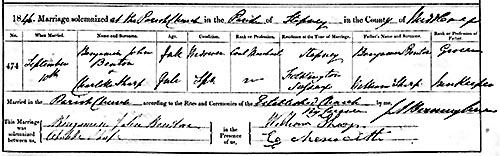 1846. Marriage solemnized at the Parish Church in the Parish of Stepney in the County of Middlesex
No. When Married. Name and Surname. Age. Condition. Rank or Profession. Residence at the Time of Marriage. Father's Name and Surname. Rank or Profession of Father.
474 September 10th Benjamin John Benton full Widower Coal Merchant Stepney Benjamin Benton Grocer
Charlotte Sharp full Spr. Sussex William Sharp Innkeeper
Married in the Parish Church according to the Rites and Ceremonies of the Established Church by me,
This Marriage was solemnized between us, Benjamin John Benton
Charlotte Sharp
in the Presence of us, William Sharp